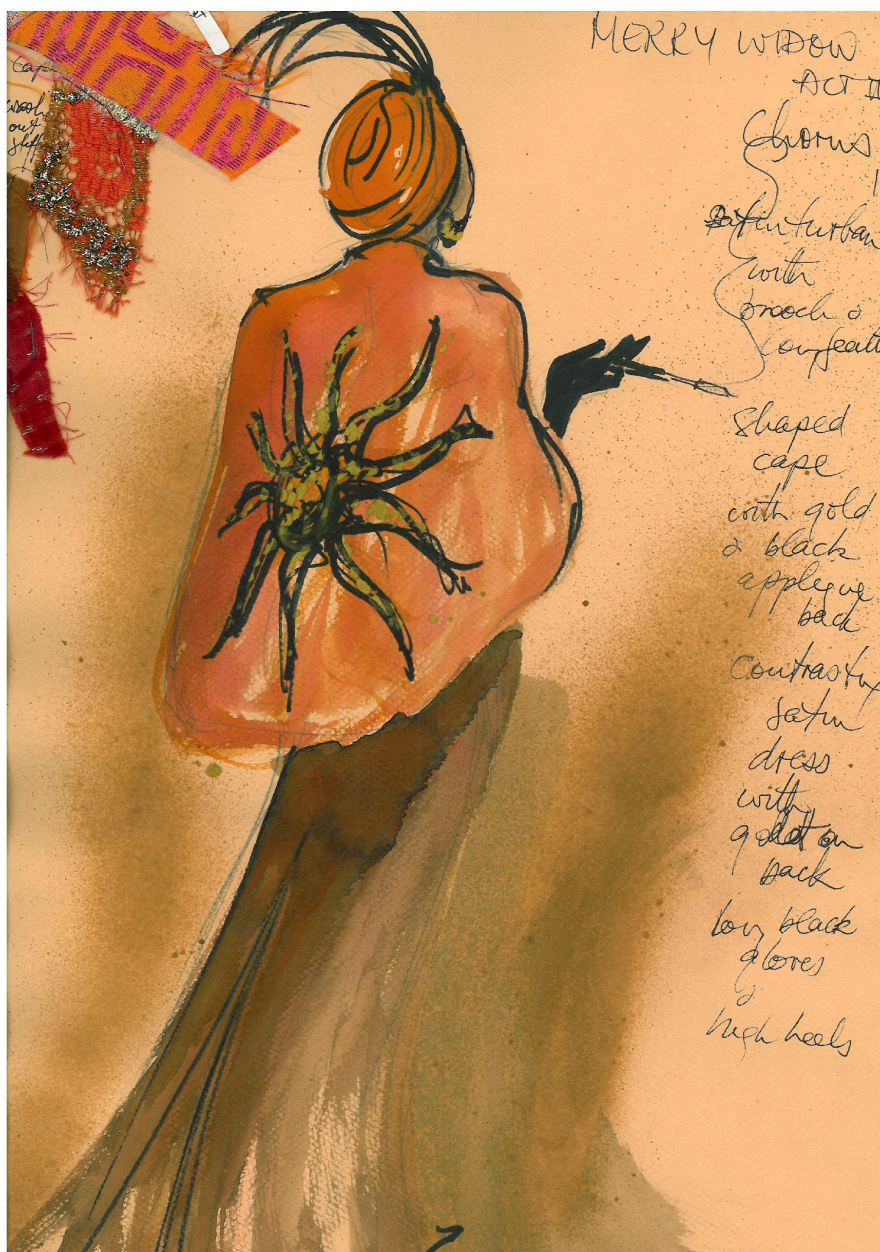 MERRY WIDOW
ACT II
Chorus
1
Satin turban
with
brooch &
long feath
shaped
cape
with gold
& black
applique
back
contrasting
satin
dress
with
back
long black
gloves
&
high heels
cape